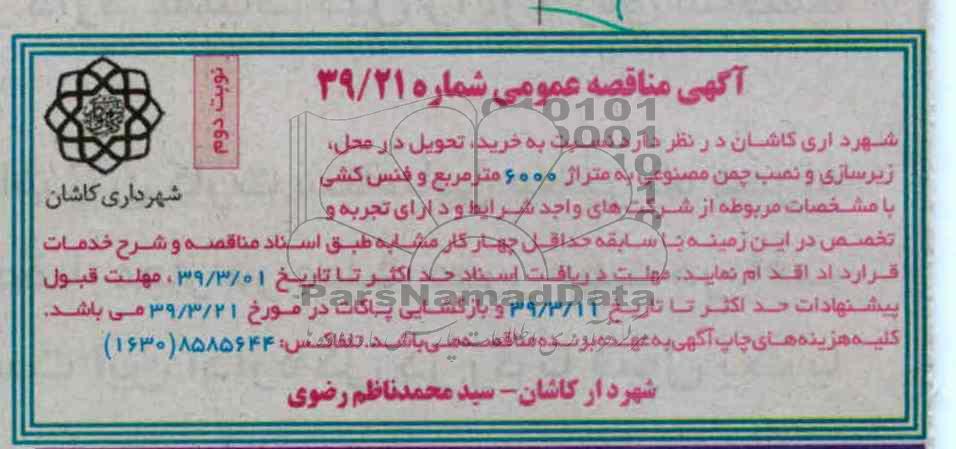 آگهی مناقصه عمومی شماره ۳۹/۲۱
نوبت دوم
شهرداری کاشان
شهرد اری کاشان د ر نظر دارد نسبت به خرید، تحویل در محل،
زیرسازی و نصب چمن مصنوعی به متراژ ۶۰۰۰ مترمربع و فنس کشی
با مشخصات مربوطه از شرکت های واجد شرایط و دارای تجربه و
تخصص در این زمینه با سابقه حداقل چهار کار مشابه طبق اسناد مناقصه و شرح خدمات
قرارد اد اقد ام نماید. مهلت دریافت اسناد حد اکثر تا تاریخ ۳۹/۳/۰۱، مهلت قبول
پیشنهادات حد اکثر تا تاریخ ۳۹/۳/۱۲ و بازگشایی پاکات در مورخ ۳۹/۳/۲۱ می باشد.
کلیه هزینه های چاپ آگهی به عهده برنده مناقصه می باشد. تلفاکس: ۸۵۸۵۶۴۴(۱۶۳۰)
شهرد ار کاشان - سید محمدناظم رضوی
ParsNamadData